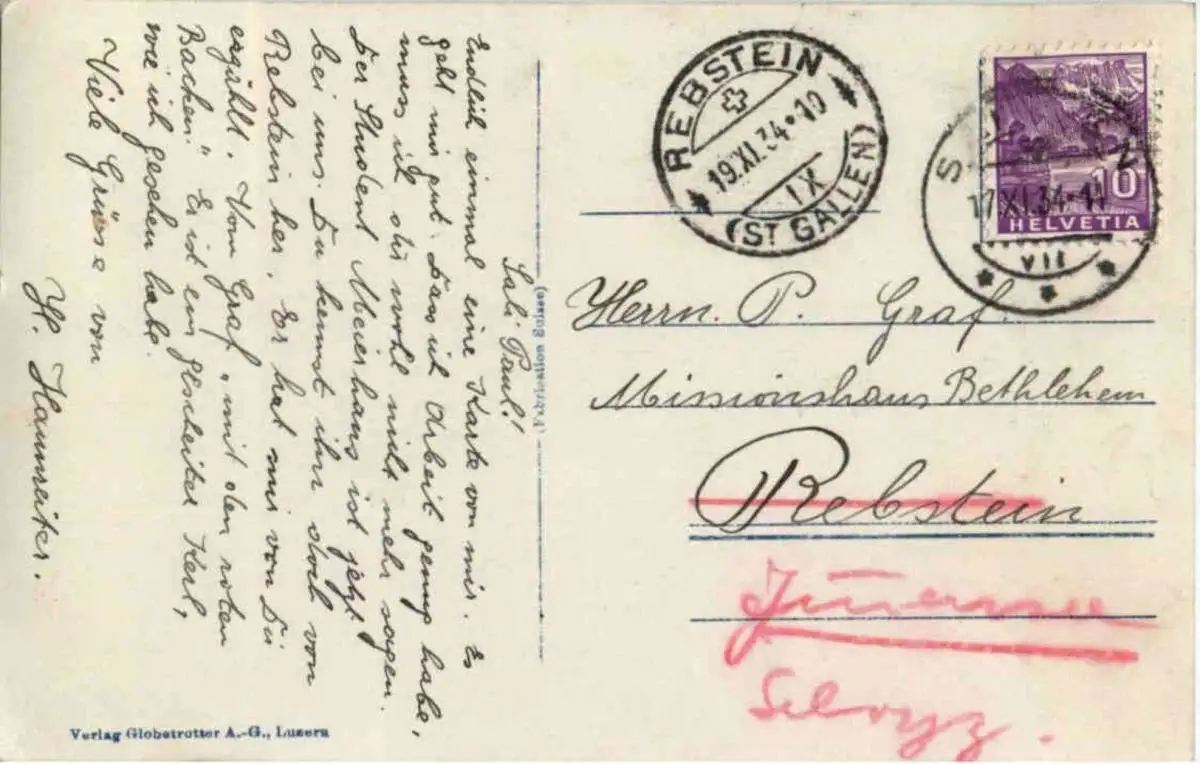 Sali Paul!
Endlich einmal eine Karte von mir. Es
geht mir gut. Dass ich Arbeit genug habe,
muss ich dir wohl nicht mehr sagen.
Der Student Meierhans ist jetzt
bei uns. Du kennst ihn doch von
Rebstein her. Er hat mir von Dir
erzählt. Vom Graf „mit den roten
Backen." Er ist ein gscheiter Kerl,
wie ich gesehen habe.
Viele Grüsse von
H.
Verlag Globetrotter A.-G., Luzern
(Fabrication Suisse)
REBSTEIN
19.XI.34-10
IX
(ST GALLEN)
17.XI.34-11
VII
10
HELVETIA
Herrn. P. Graf.
Missionshaus Bethlehem
Rebstein
Immensee
Schwyz.